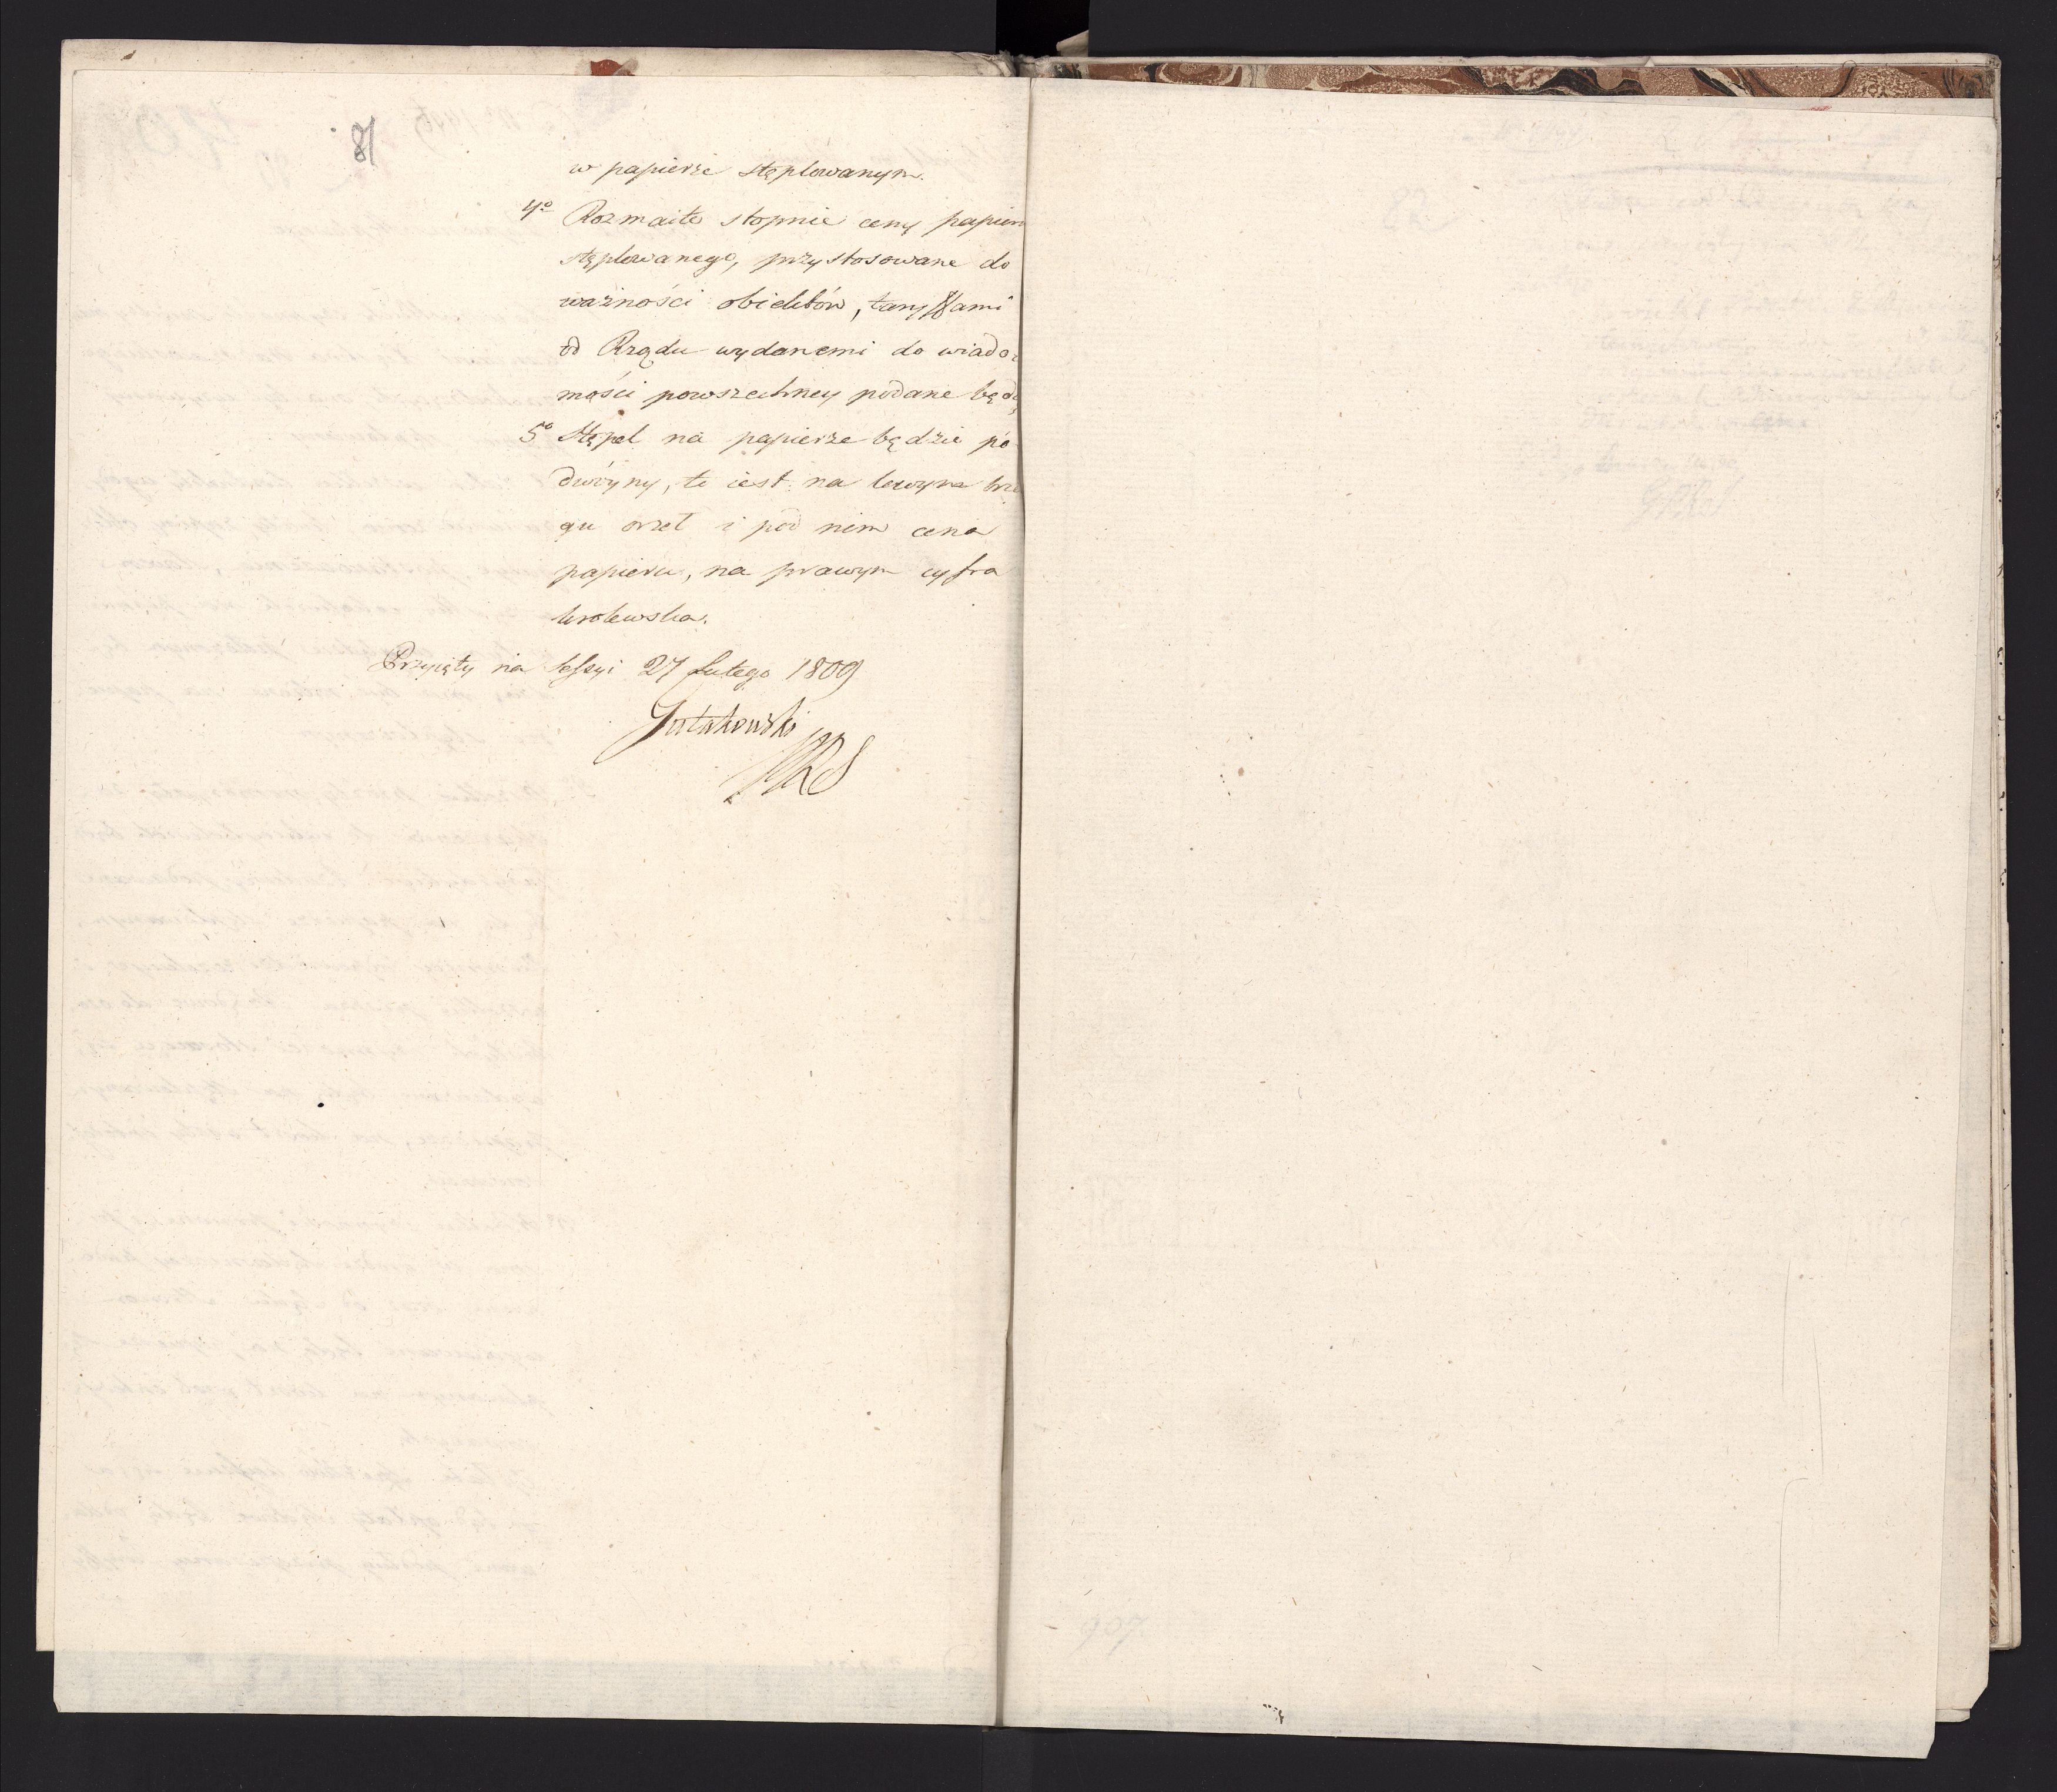 81
w papierze stęplowanym.
4o Rozmaite stopnie ceny papieru
stęplowanego, przystosowane do
ważności obiektów, taryffami
od Rządu wydanemi do wiado-
mości powszechney podane będą
5o Stępel na papierze będzie po-
dwóyny, to iest na lewym brze
gu orzeł i pod nim cena
papieru, na prawym cyfra
krolewska.
Przyięty na Sessyi 27 Lutego 1809
Gutakowski
PRS